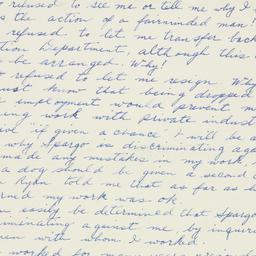 refused to see me or tell me why I
is the action of a fairminded man
refused to let me transfer back
tion Department, although this
be arranged. Why!
refused to let me resign. Why
ust know that being dropped
employment would prevent m
ing work with private indust
"if given a chance" I will be a
why Spargo is discriminating aga
made any mistakes in my work,
a dog should be given a second c
Ryan told me that as far as h
rned my work was ok
easily be determined that Spargo
iminating against me, by inquire
men with whom I worked.
worked for many years